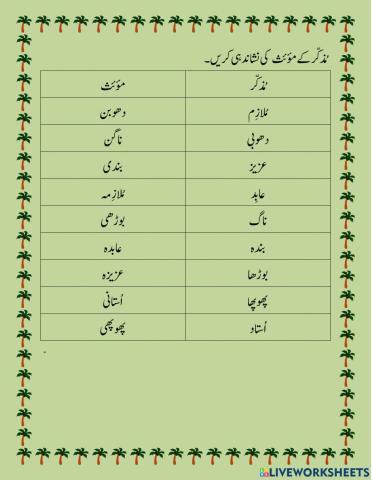 مُذکّر کے مؤنث کی نشاندہی کریں۔
مُذکّر مؤنث
مُلازِم دھوبن
دھوبی ناگن
عزیز بندی
عابِد مُلازِمہ
ناگ بوڑھی
بندہ عابدہ
بوڑھا عزیزہ
پھوپھا اُستانی
اُستاد پھوپھی
LIVEWORKSHEETS